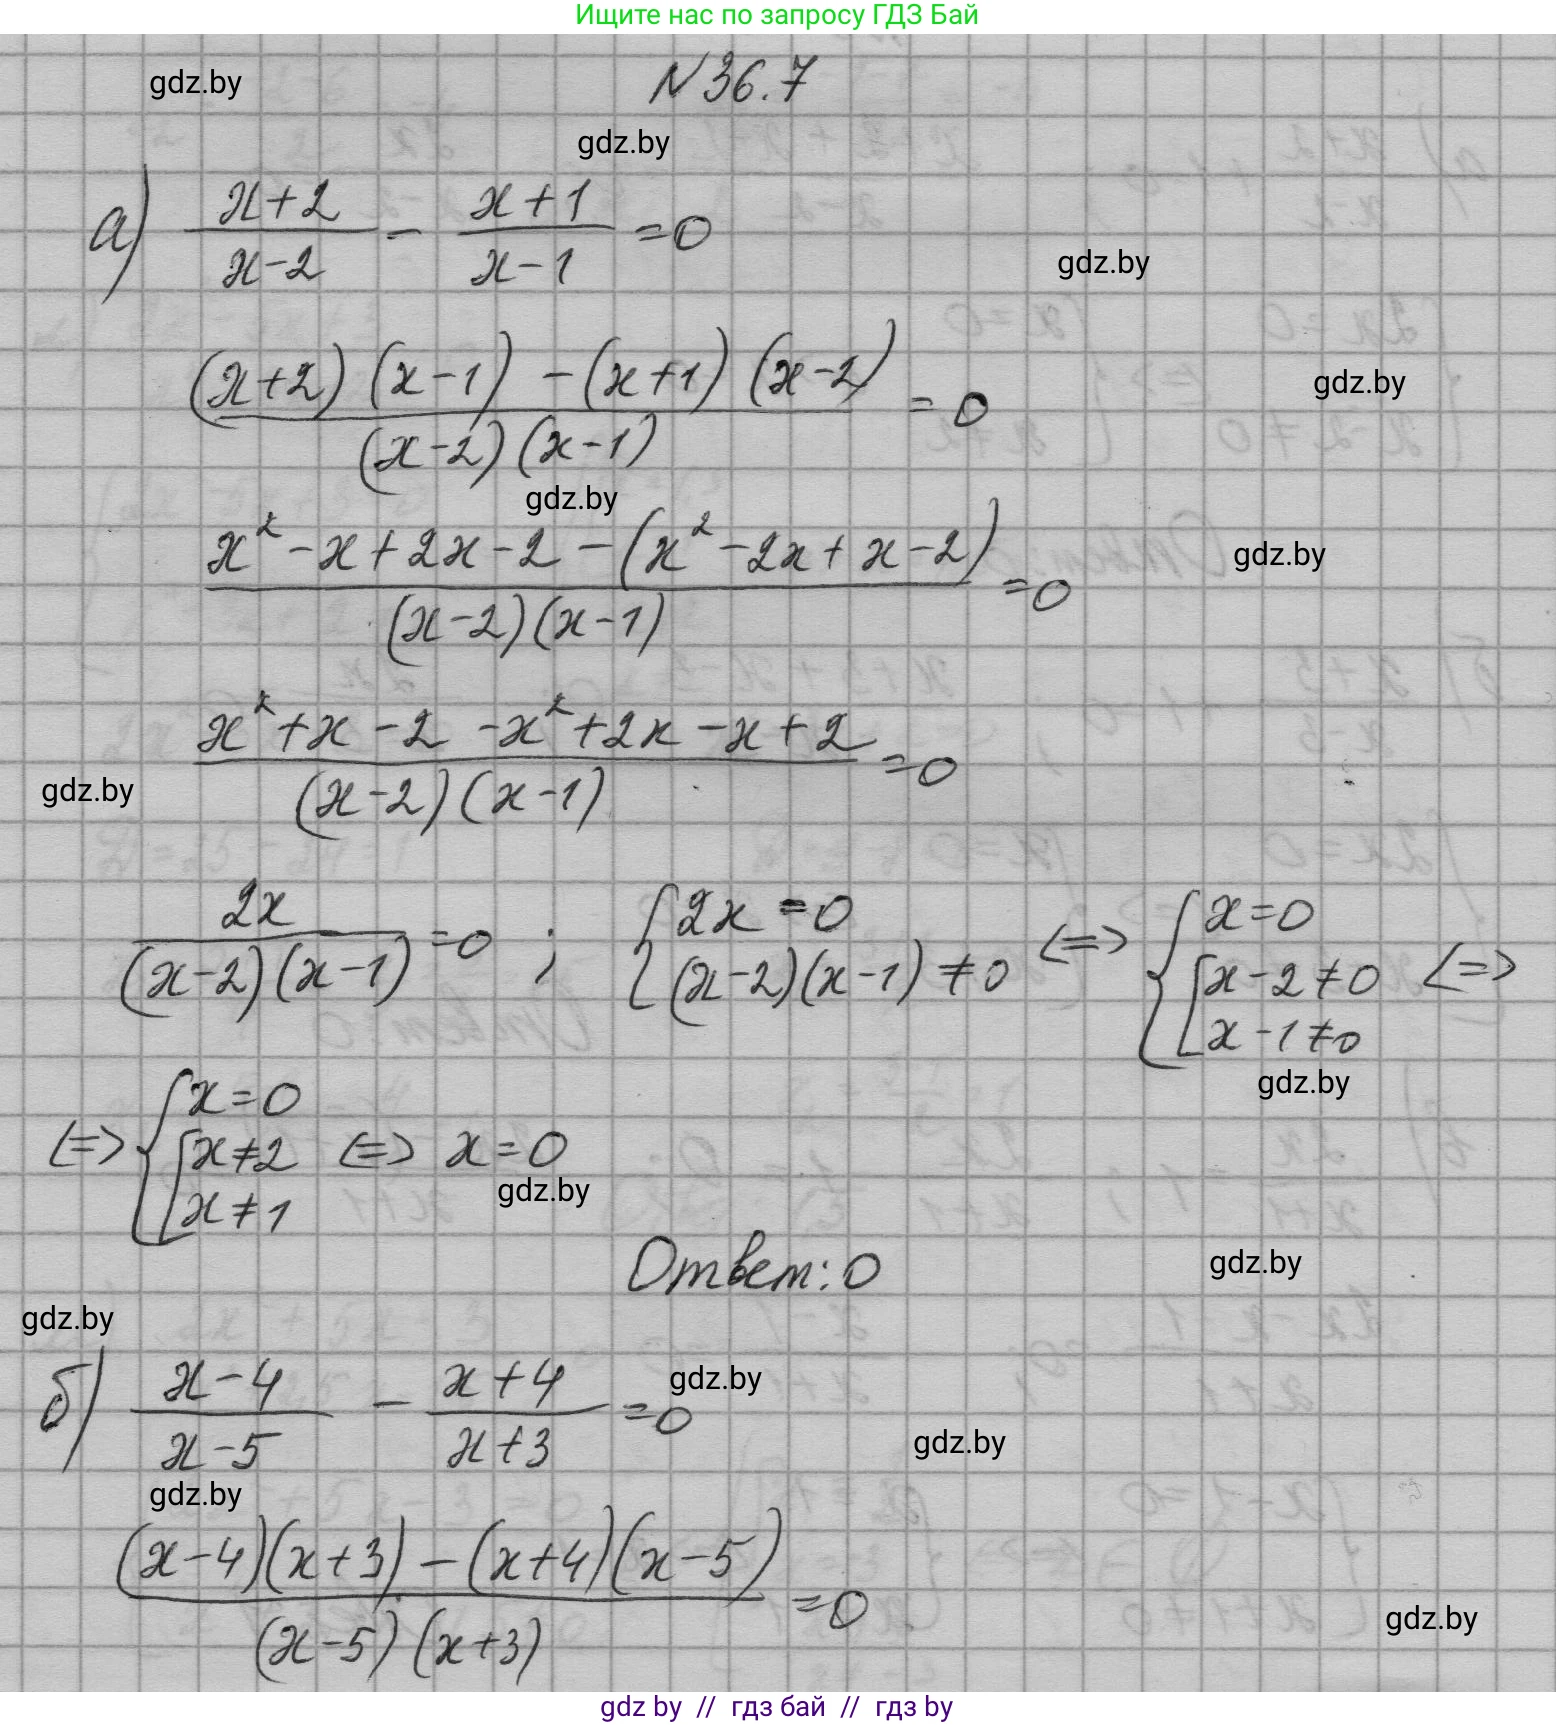 Ищите нас по запросу ГДЗ Бай
gdz.by
N 36.7
gdz.by
а) (x+2)/(x-2) - (x+1)/(x-1) =0
gdz.by
((x+2)(x-1) - (x+1)(x-2))/((x-2)(x-1)) = 0
gdz.by
gdz.by
(x² -x+2x-2 - (x² -2x+x-2))/((x-2)(x-1)) =0
gdz.by
(x² +x-2 -x² +2x-x+2)/((x-2)(x-1)) =0
gdz.by
2x/((x-2)(x-1)) =0 ; { 2x =0 (x-2)(x-1) ≠0 <=> { x=0 [ x-2≠0 x-1≠0 <=>
gdz.by
<=> { x=0 [ x≠2 x≠1 <=> x=0
gdz.by
Ответ: 0
gdz.by
gdz.by
б) (x-4)/(x-5) - (x+4)/(x+3) =0
gdz.by
gdz.by
gdz.by
((x-4)(x+3) - (x+4)(x-5))/((x-5)(x+3)) =0
gdz.by
gdz by // гдз бай // гдз by